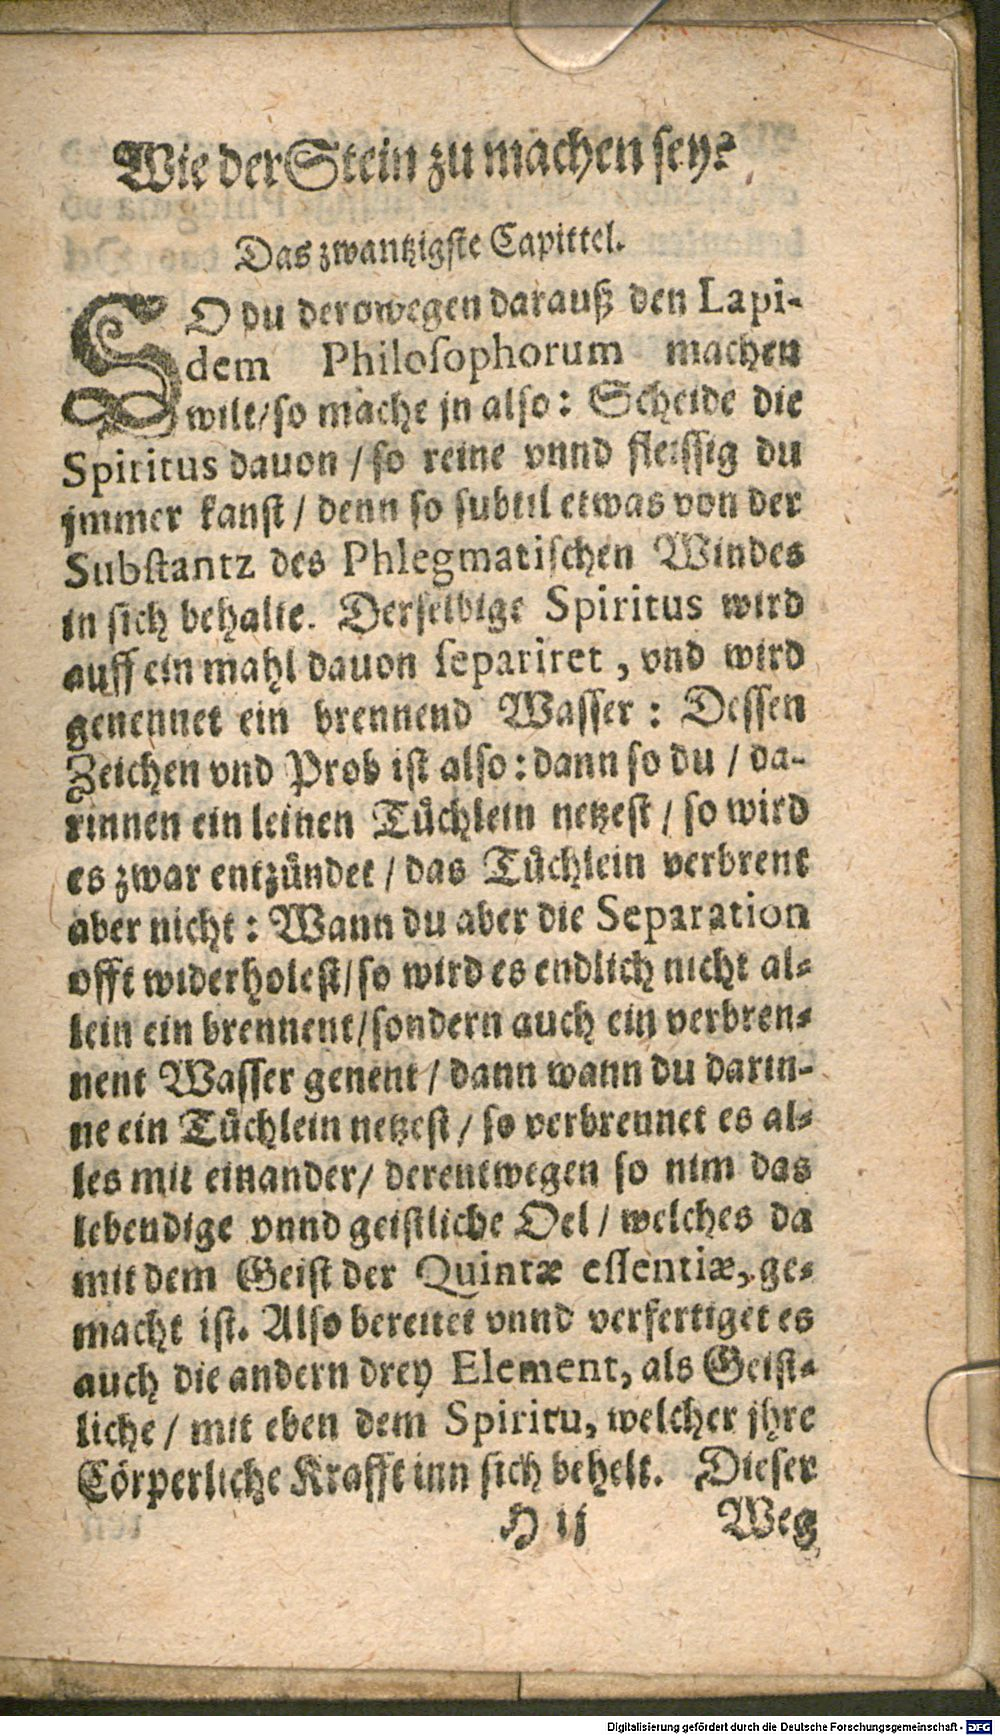 Wie der Stein zu machen sey?
Das zwantzigste Capittel.
SO du derowegen darauß den Lapi-
dem Philosophorum machen
wilt/so mache jn also: Scheide die
Spiritus dauon / so reine vnnd fleissig du
jmmer kanst / denn so subtil etwas von der
Substantz des Phlegmatischen Windes
in sich behalte. Derselbige Spiritus wird
auff ein mahl dauon separiret, vnd wird
genennet ein brennend Wasser: Dessen
Zeichen vnd Prob ist also: dann so du / da-
rinnen ein leinen Tuͤchlein netzest / so wird
es zwar entzuͤndet / das Tuͤchlein verbrent
aber nicht: Wann du aber die Separation
offt widerholest/so wird es endlich nicht al-
lein ein brennent/sondern auch ein verbren-
nent Wasser genent / dann wann du darin-
ne ein Tuͤchlein netzest / so verbrennet es al-
les mit einander/ derentwegen so nim das
lebendige vnnd geistliche Oel / welches da
mit dem Geist der Quintæ essentiæ, ge-
macht ist. Also bereitet vnnd verfertiget es
auch die andern drey Element, als Geist-
liche / mit eben dem Spiritu, welcher jhre
Coͤrperliche Krafft inn sich behelt. Dieser
H ij Weg
Digitalisierung gefördert durch die Deutsche Forschungsgemeinschaft - DFG